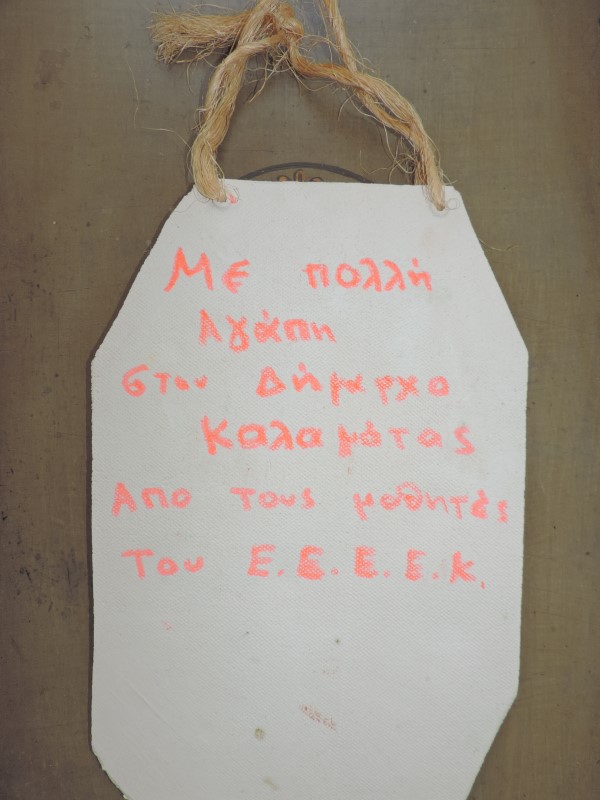 Με πολλή
Αγάπη
στον Δήμαρχο
Καλαμάτας
Απο τους μαθητές
Του Ε.Ε.Ε.Ε.Κ.